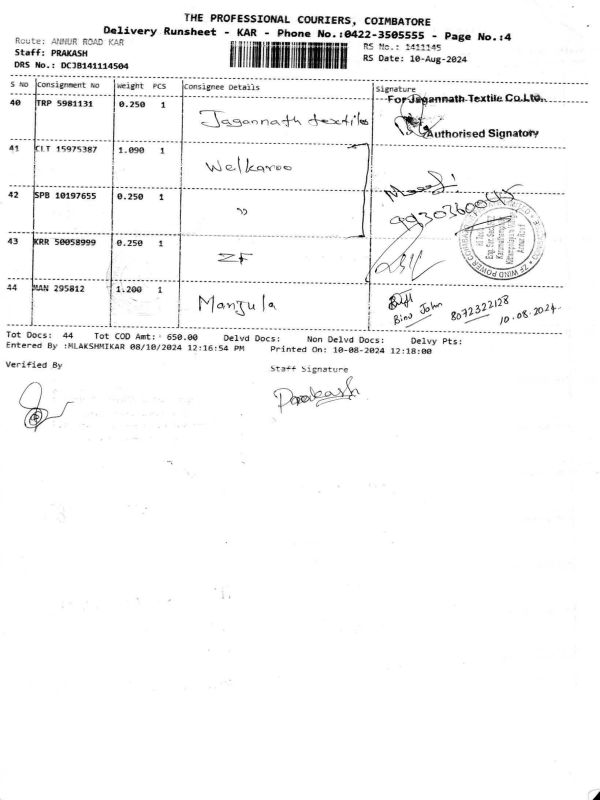 THE PROFESSIONAL COURIERS, COIMBATORE
Delivery Runsheet - KAR - Phone No.:0422-3505555 - Page No.:4
Route: ANNUR ROAD KAR
RS No.: 1411145
Staff: PRAKASH
RS Date: 10-Aug-2024
DRS No.: DCJB141114504
S No Consignment No Weight PCS Consignee Details Signature
40 TRP 5981131 0.250 1 Jagannath textiles
For Jagannath Textile Co Ltd.
Authorised Signatory
41 CLT 15975387 1.090 1 Welkaroo
42 SPB 10197655 0.250 1 "
9930360045
43 KRR 50058999 0.250 1 ZF
44 MAN 295812 1.200 1 Manjula
Binu John 8072322128
10.08.2024
Tot Docs: 44 Tot COD Amt: 650.00 Delvd Docs: Non Delvd Docs: Delvy Pts:
Entered By :MLAKSHMIKAR 08/10/2024 12:16:54 PM Printed On: 10-08-2024 12:18:00
Verified By
Staff Signature
Prakash